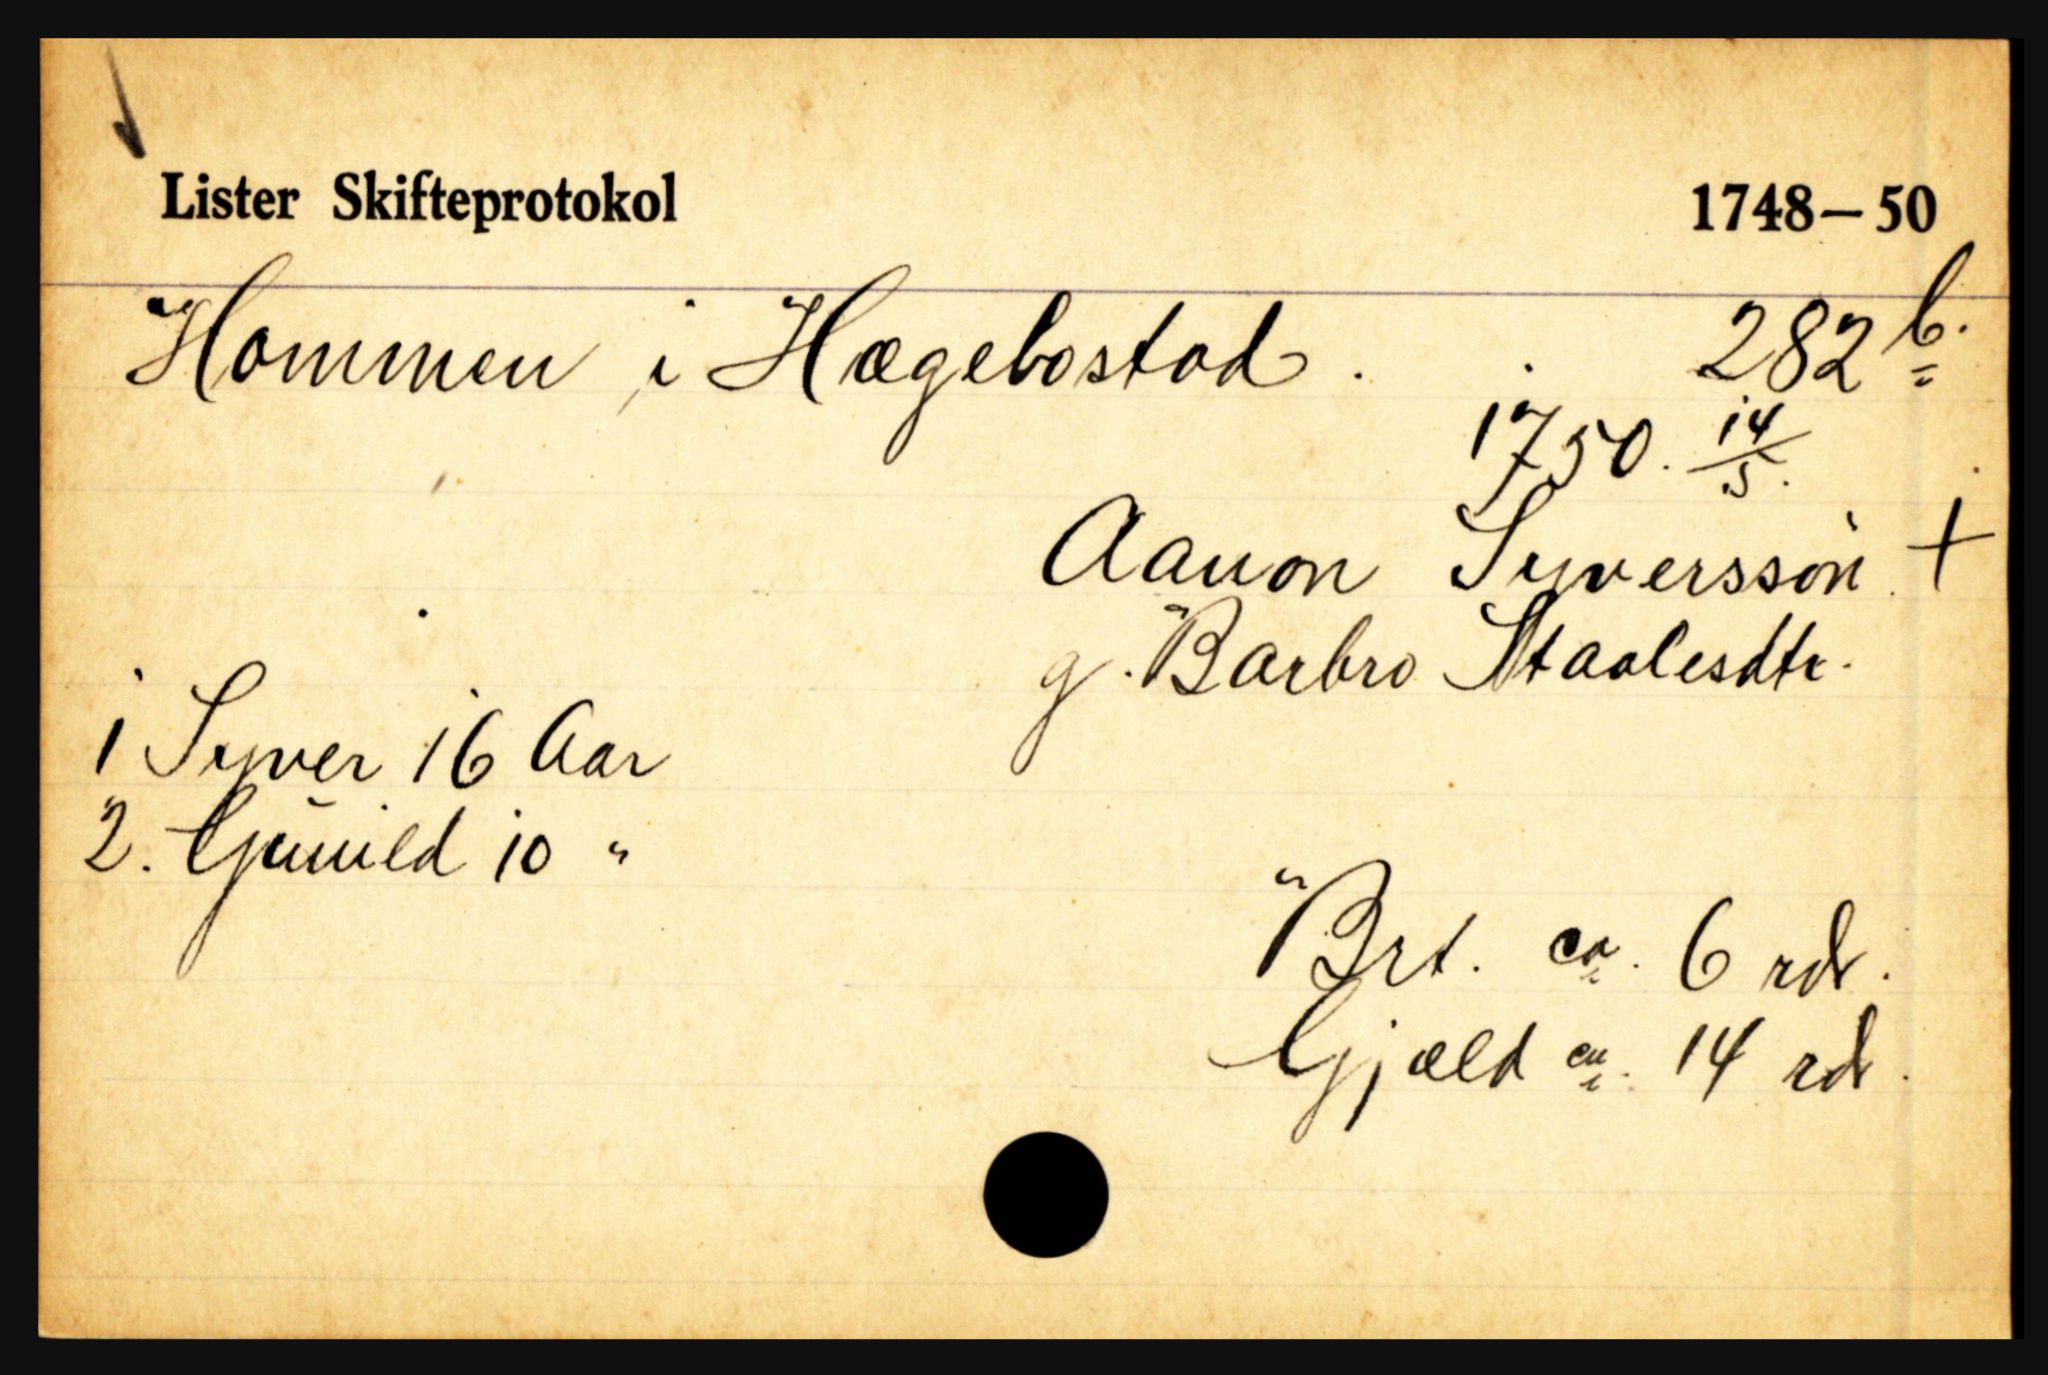 Lister Skifteprotokol 1748–50
Hommen i Hægebostad. 282 b.
1750. 14/5.
Aanon Syversson +
g. Barbro Staalesdtr.
1 Syver 16 Aar
2. Gunild 10 "
Brt. ca. 6 rdr.
Gjæld ca. 14 rdr.